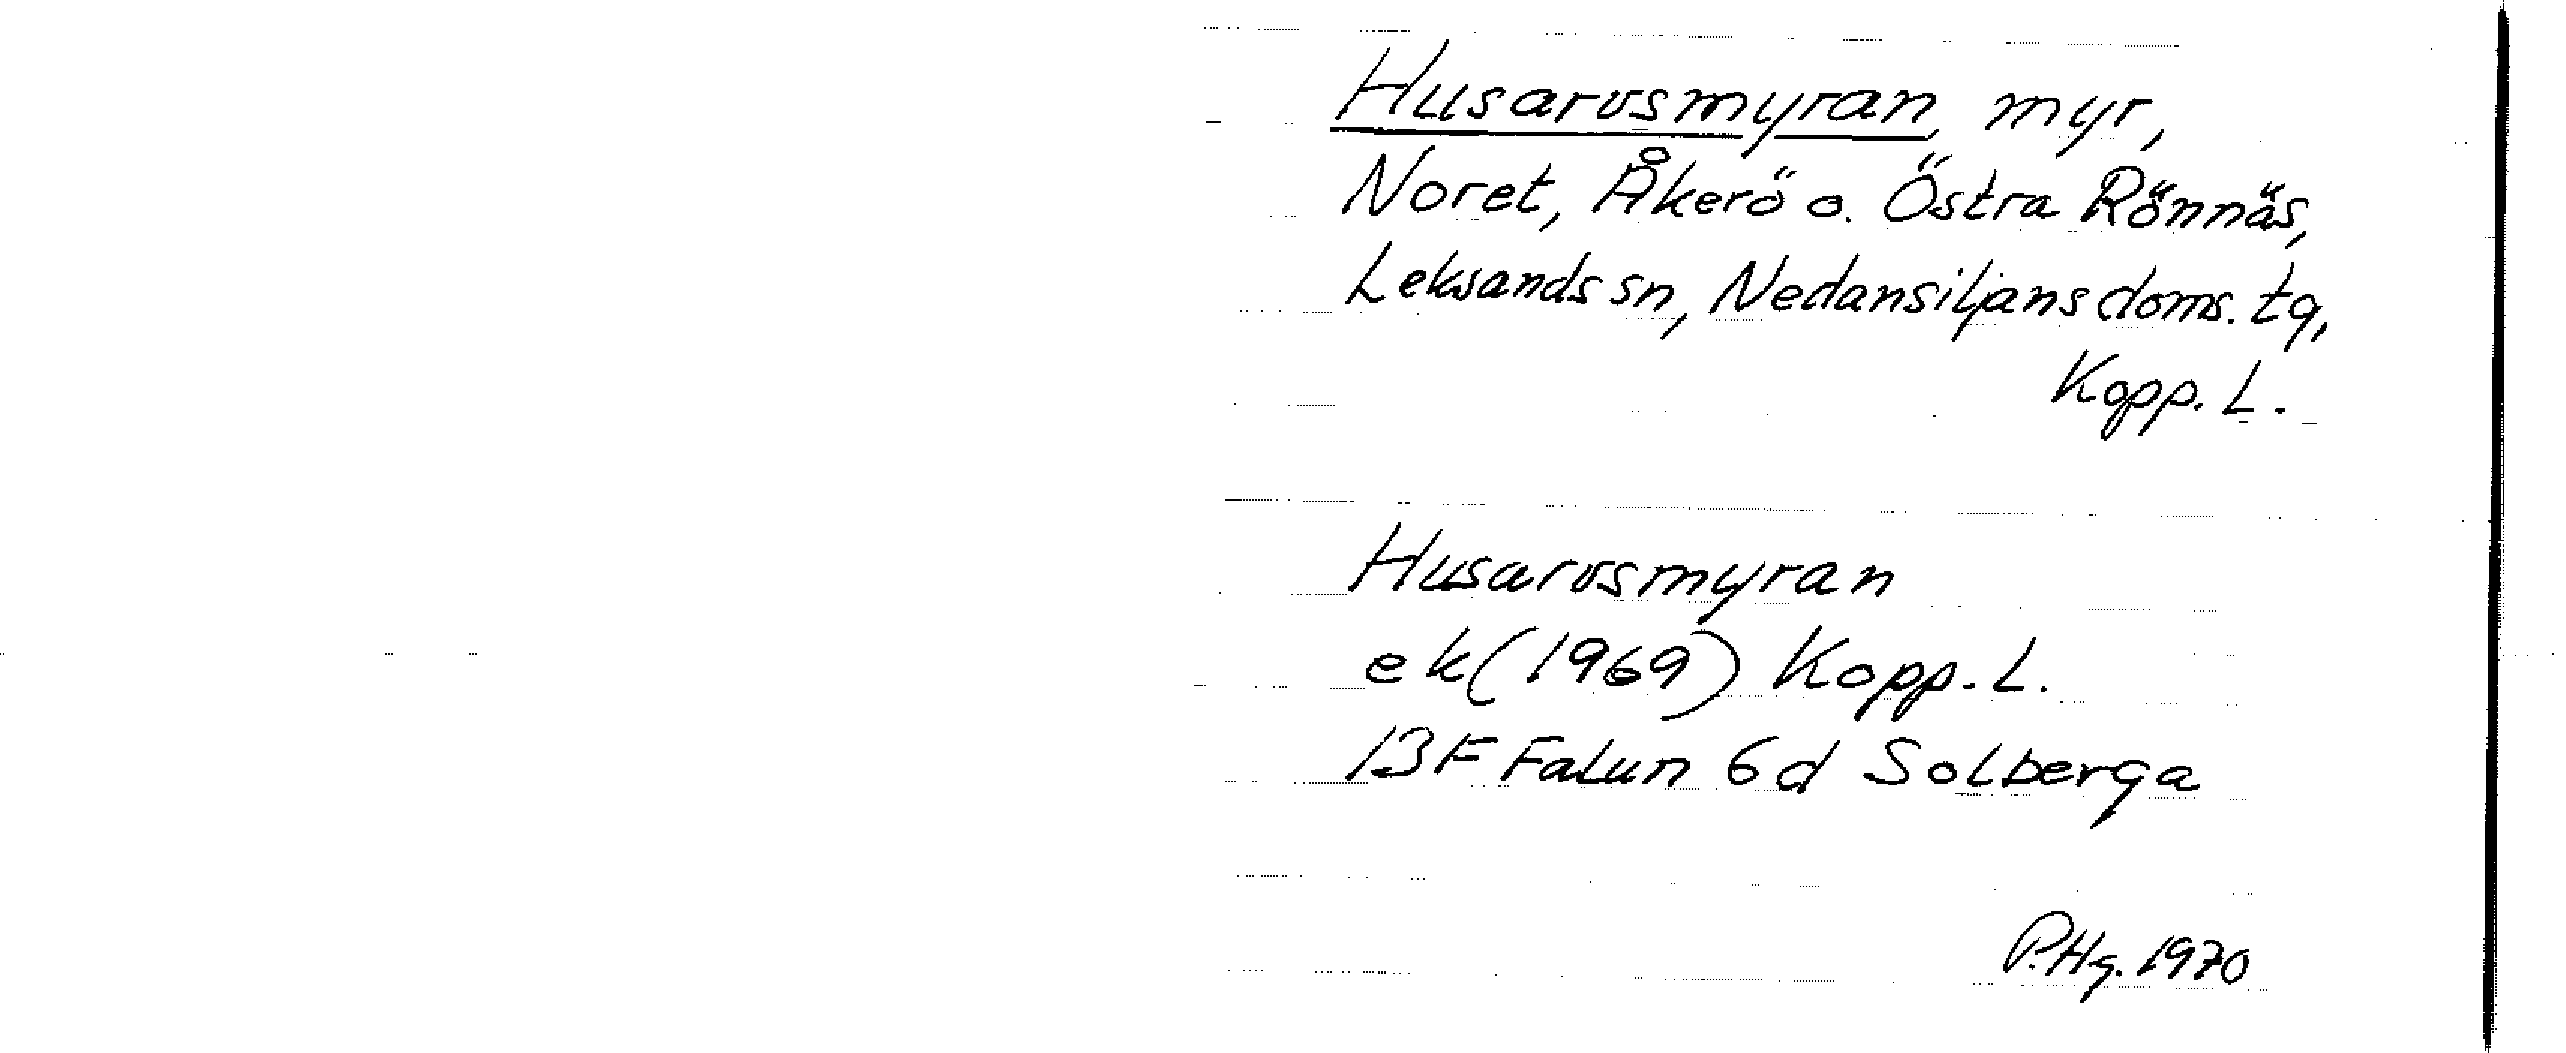 Husarvsmyran, myr,
Noret, Åkerö o. Östra Rönnäs,
Leksands sn, Nedansiljans doms. tg,
Kopp. L.
Husarvsmyran
ek (1969) Kopp. L.
13F Falun 6d Solberga
P.Hg. 1970